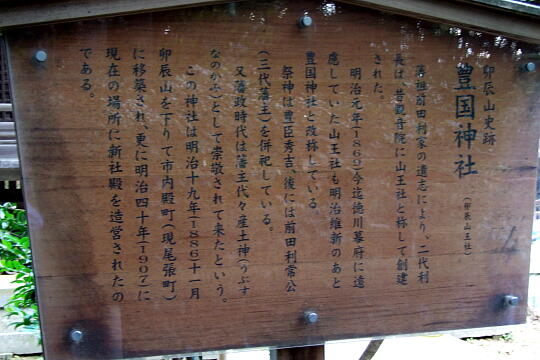 卯辰山史跡
豊国神社
(卯辰山王社)
藩祖前田利家の遺志により、二代利
長は、昔観音院に山王社と称して創建
された。
明治元年(1869)今迄徳川幕府に遠
慮していた山王社も明治維新のあと
豊国神社と改称している
祭神は豊臣秀吉、後には前田利常公
(三代藩主)を併祀している。
又藩政時代は藩主代々産土神(うぶす
なのかみ)として崇敬されて来たという。
この神社は明治十九年(1886)十一月
卯辰山を下りて市内殿町(現尾張町)
に移築され、更に明治四十年(1907)に
現在の場所に新社殿を造営されたの
である。